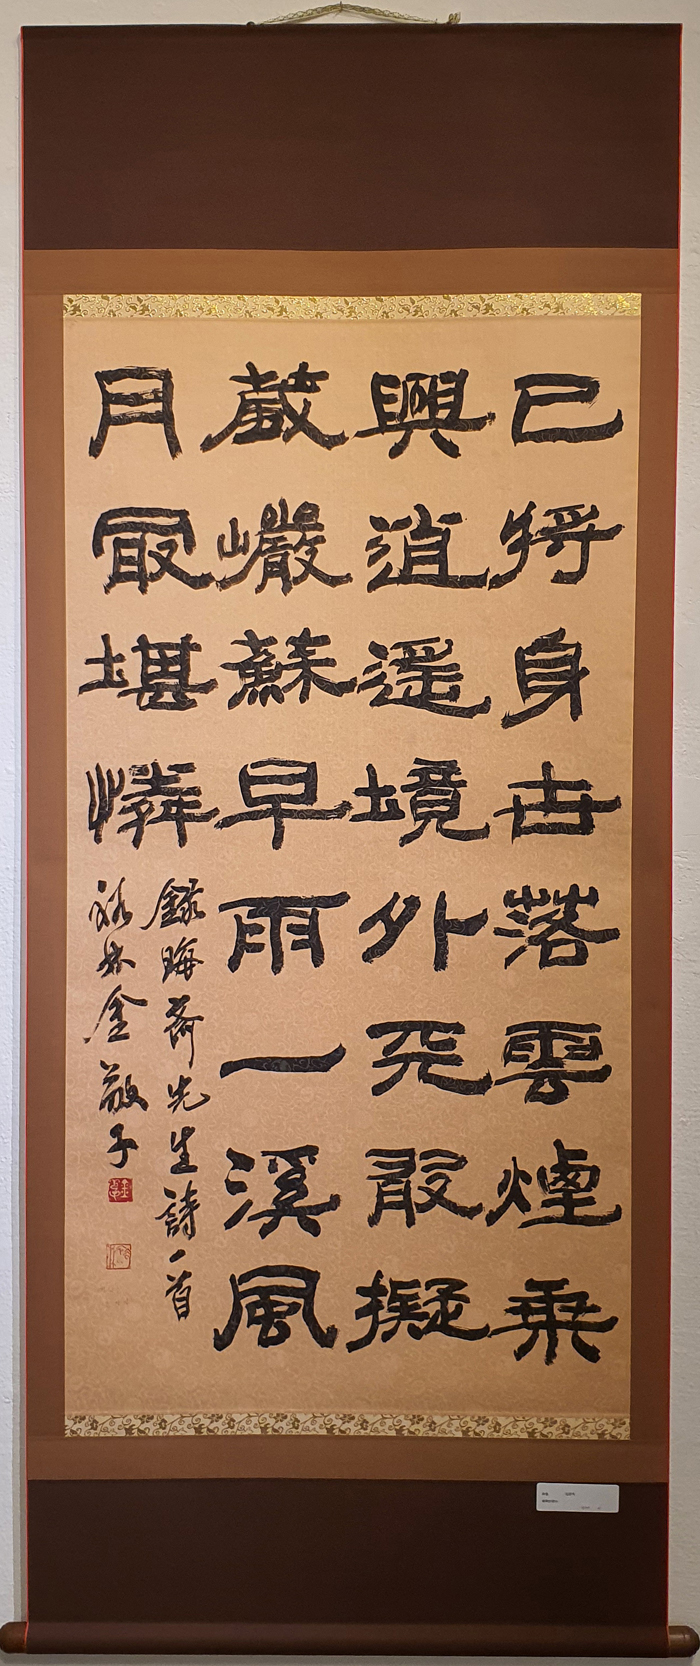 已將身世落雲煙乘
興逍遙境外天敢擬
蔵巗蘇早雨一溪風
月最堪憐
錄晦齋先生詩一首
林金敬子